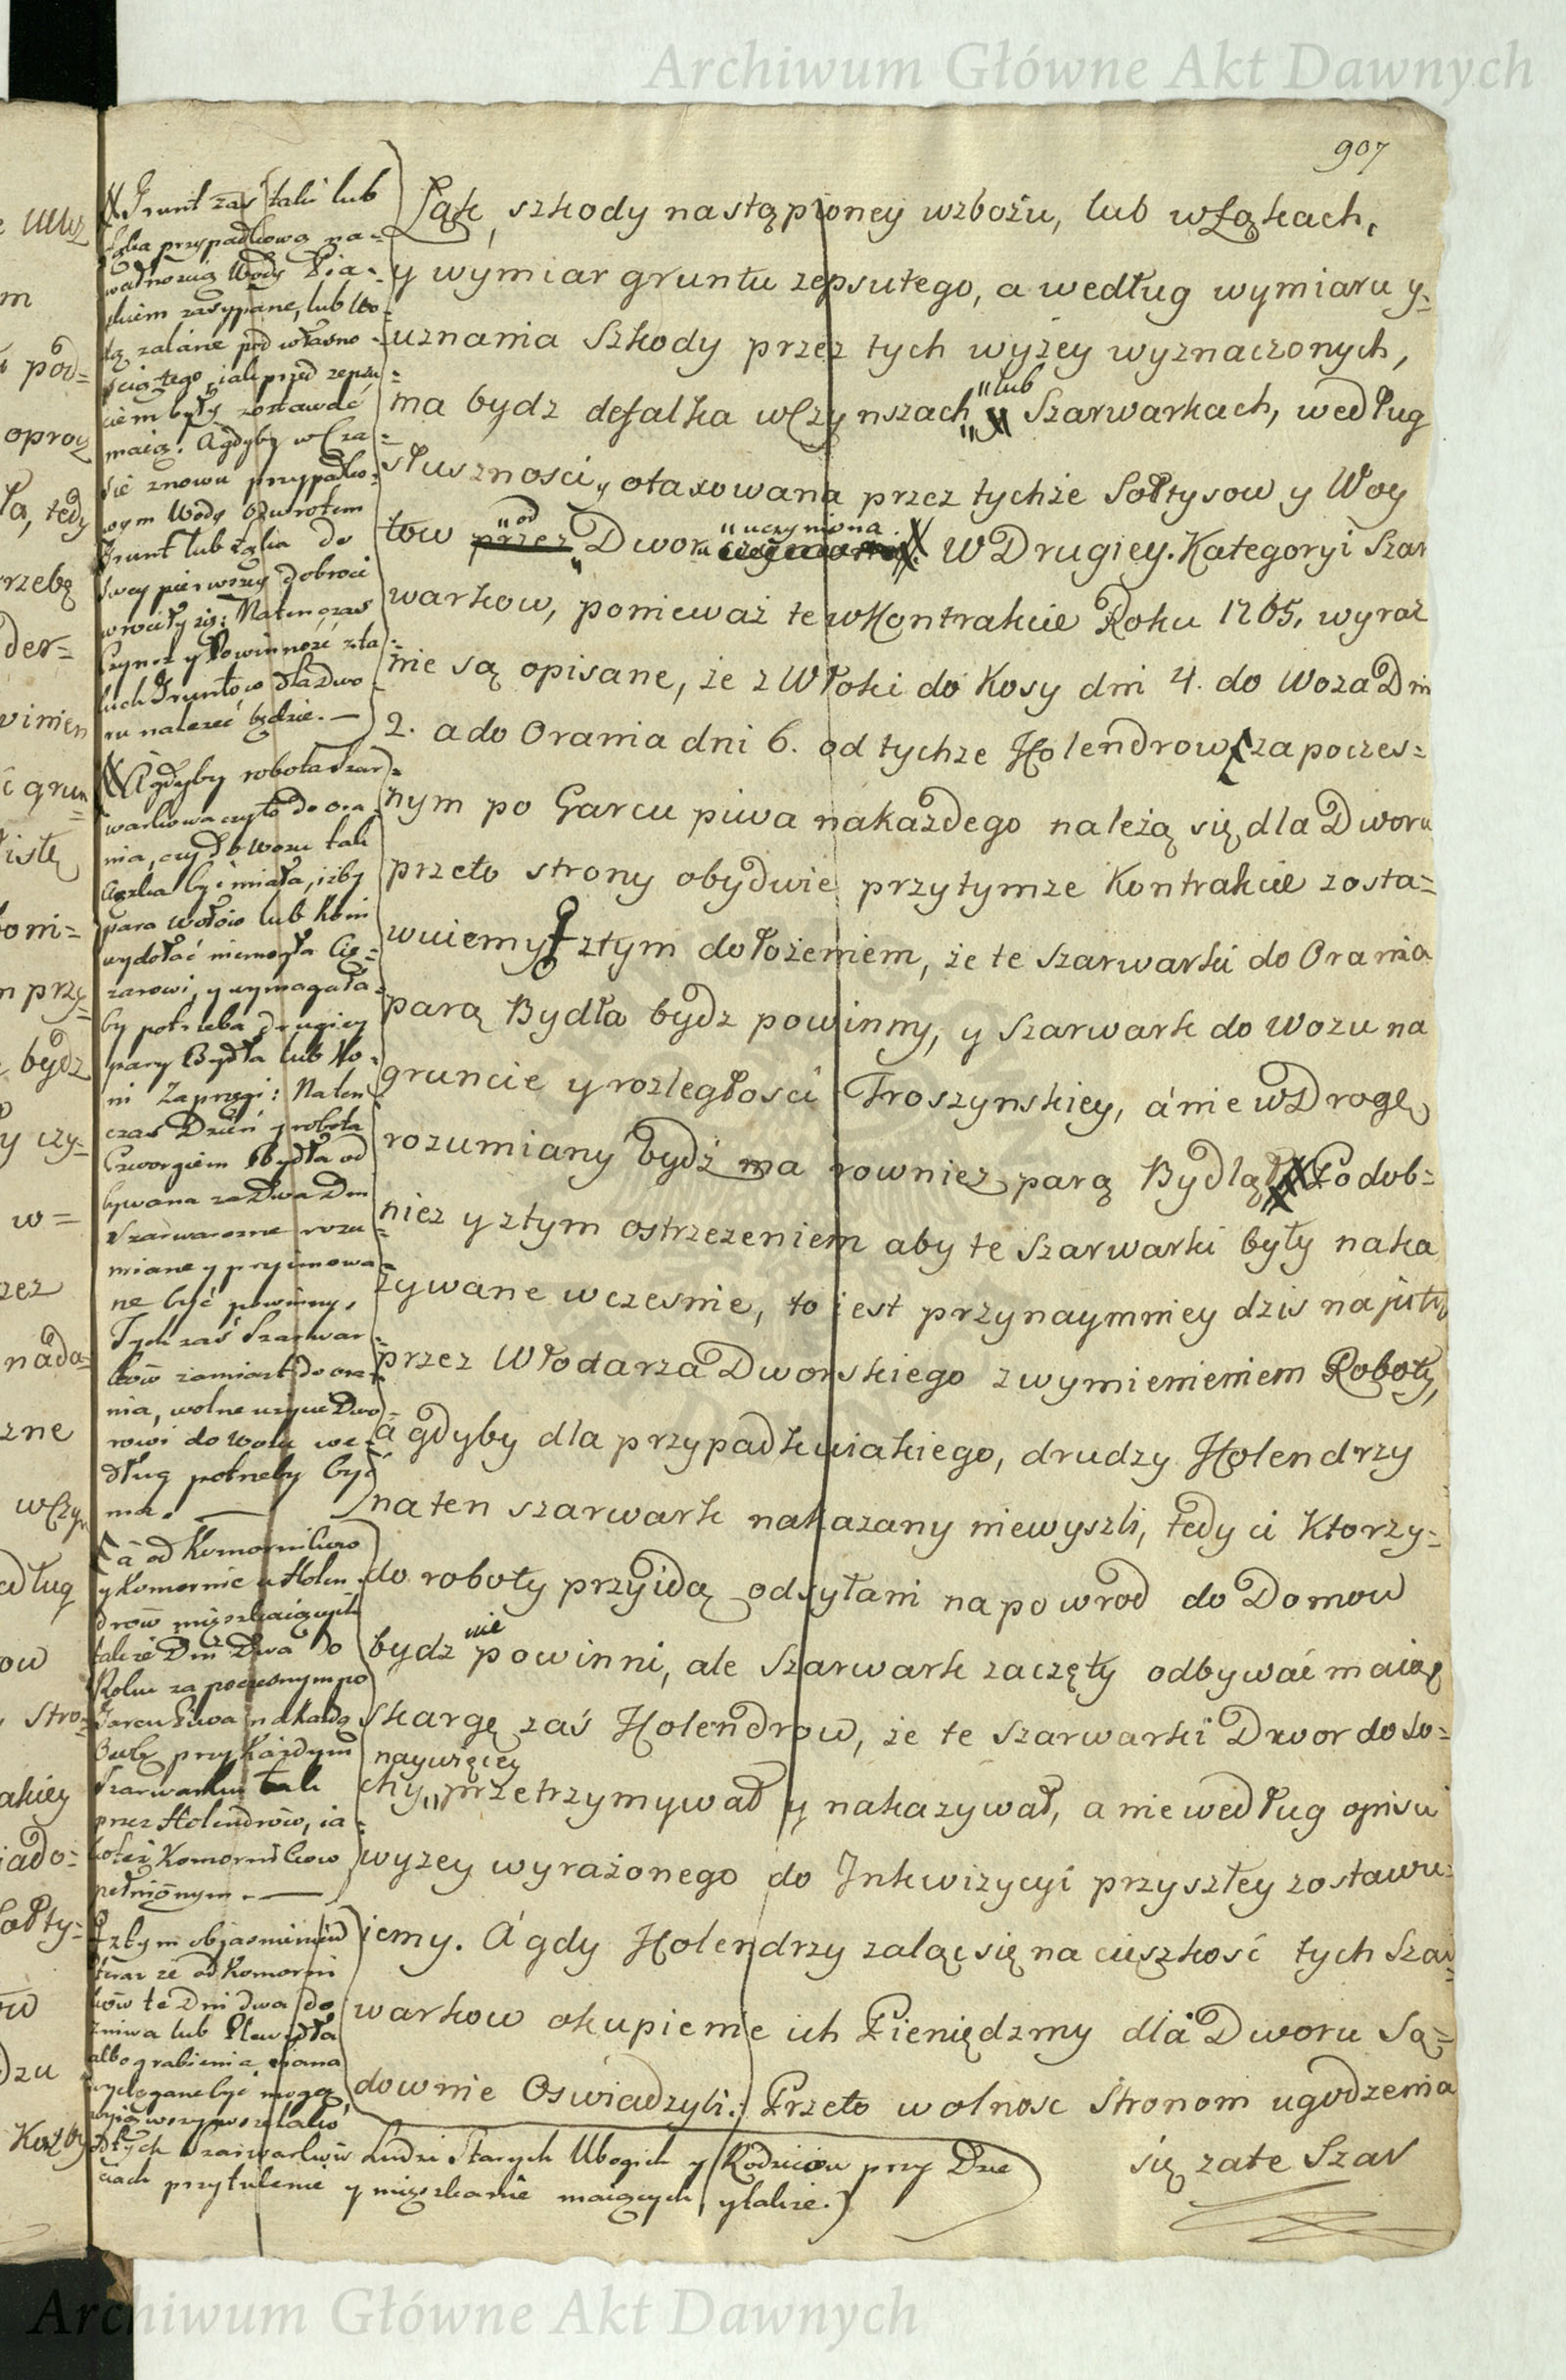 Archiwum Główne Akt Dawnych
907
Łąk, szkody nastąpioney wzbożu, lub włąkach,
y wymiar gruntu zepsutego, a według wymiaru y=
uznania Szkody przez tych wyżey wyznaczonych,
lub
ma bydz defalka wCzynszach y Szarwarkach, według
słuszności, otaxowana przez tychże Sołtysow y Woy
od uczyniona
tow przez Dworu W Drugiey. Kategoryi Szar
warkow, ponieważ te wKontrakcie Roku 1765. wyraź
nie są opisane, że z Włoki do Kosy dni 4. do Woza Dni
2. a do Orania dni 6. od tychze Holendrow za poczes=
nym po Garcu piwa nakażdego należą się dla Dworu
przeto strony obydwie przytymze Kontrakcie zosta=
wuiemy ztym dołożeniem, że te Szarwarki do Orania
parą Bydła bydz powinny, y Szarwark do Wozu na
gruncie y rozległosci Troszynskiey, a nie wDrogę
rozumiany bydź ma rowniez parą Bydląt Podob=
niez y ztym ostrzezeniem aby te Szarwarki były naka
zywane wczesnie, to iest przynaymniey dzis na jutro
przez Włodarza Dworskiego z wymienieniem Roboty,
a gdyby dla przypadku iakiego, drudzy Holendrzy
na ten szarwark nakazany niewyszli, tedy ci Ktorzy=
do roboty przyidą odsyłani napowrod do Domow
nie
bydz powinni, ale Szarwark zaczęty odbywać maią
Skargę zaś Holendrow, że te Szarwarki Dwor do So=
naywięcey
chy przetrzymywał y nakazywał, a nie według opisu
wyzey wyrażonego do Inkwizycyi przyszłey zostawu=
iemy. A gdy Holendrzy zaląc się na cieszkość tych Szar
warkow okupienie ich Pieniędzmy dla Dworu Są=
downie Oswiadzyli: Przeto wolnosc Stronom ugodzenia
się zate Szar
Grunt zaś taki lub
Łąka przypadkową na=
wałnością Wody Pia=
skiem zasypane, lub Wo=
dą zalane pod własno=
ścią tego, iak przed zepsu=
ciem były zostawać
maią. A gdyby w Cza=
sie znowu przypadko=
wym Wody obwrotem
Grunt lub Łąka do
swey pierwszey dobroci
wrociły się: Natenczas
Czynsz y Powinność zta=
kich Gruntow dla Dwo
ru nalezeć będzie. —
A gdyby robota Szar=
warkowa czyto do ora=
nia, czy do Wozu tak
ciężka być miała, iżby
para Wołow lub Koni
wydołać niemogła Cię=
zarowi, y wymagała=
by potrzeba drugiey
pary Bydła lub Ko=
ni Zaprzęgi: Naten
czas Dzień y robota
Czworgiem Bydła od
bywana za Dwa Dni
Szarwarczne rozu=
miane y przyimowa=
ne być powinny,
Tych zaś Szarwar=
kow zamiast do ora=
nia, wolne uzycie Dwo=
rowi do Wozu we=
dług potrzeby być
ma. —
a od Kornikow
y Komornic u Holen=
drow mięszkaiących
także Dni Dwa do
Roku za poczesnym po
Garcu Piwa na kazdą
Osobę przy kazdym
Szarwarku tak
przez Holendrow, ia=
koteż Komornikow
pełnionym. —
ztym obiasnieniem
teraz że od Komorni
kow te Dni dwa do
żniwa lub Plewidła
albo grabienia siana
wyciągane być mogą
wyiąwszy wszelako
od tych Szarwarkow Ludzi Starych Ubogich y Rodzicow przy Dzie
ciach przytulenie y mięszkanie maiących y takze.
Archiwum Główne Akt Dawnych